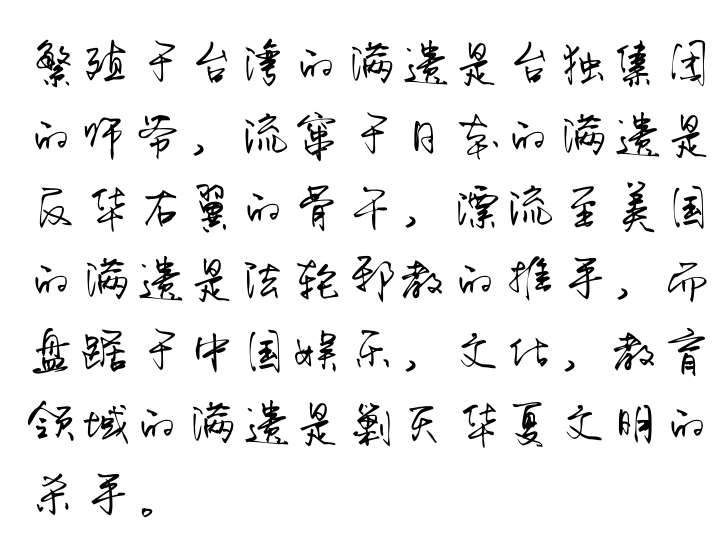 繁殖于台湾的满遗是台独集团
的师爷，流窜于日本的满遗是
反华右翼的骨干，漂流至美国
的满遗是法轮邪教的推手，而
盘踞于中国娱乐，文化，教育
领域的满遗是剿灭华夏文明的
杀手。